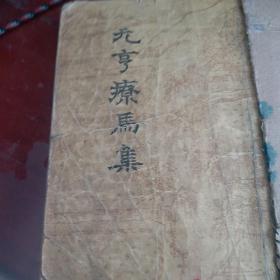 元亨療馬集